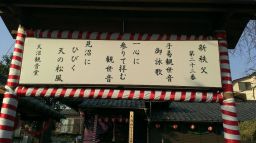 新秩父
第二十三番
子易観世音
御詠歌
一心に
参りて拝む
観世音
見沼に
ひびく
天の松風
天沼観音堂